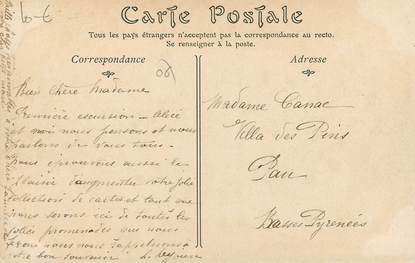 6-€
Carte Postale
Tous les pays étrangers n'acceptent pas la correspondance au recto.
Se renseigner à la poste.
Correspondance
06
Bien chère Madame
Première excursion - Alice
et moi nous pensons et nous
parlons de vous tous.
nous éprouvons aussi le
plaisir d'augmenter votre jolie
collection de cartes et tout que
nous serons ici de toutes les
jolies promenades que nous
ferons nous nous rappellerons à
votre bon souvenir
Adresse
Madame Canac
Villa des Pins
Pau
Basses Pyrénées